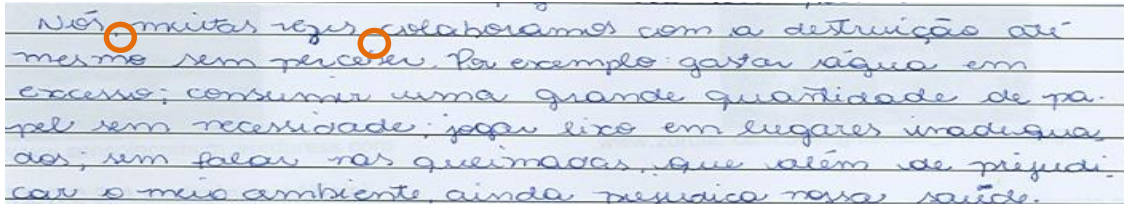 Nós, muitas vezes, colaboramos com a destruição até
mesmo sem perceber. Por exemplo: gastar água em
excesso; consumir uma grande quantidade de pa-
pel sem necessidade; jogar lixo em lugares inadequa
dos; sem falar nas queimadas, que além de prejudi-
car o meio ambiente, ainda prejudica nossa saúde.